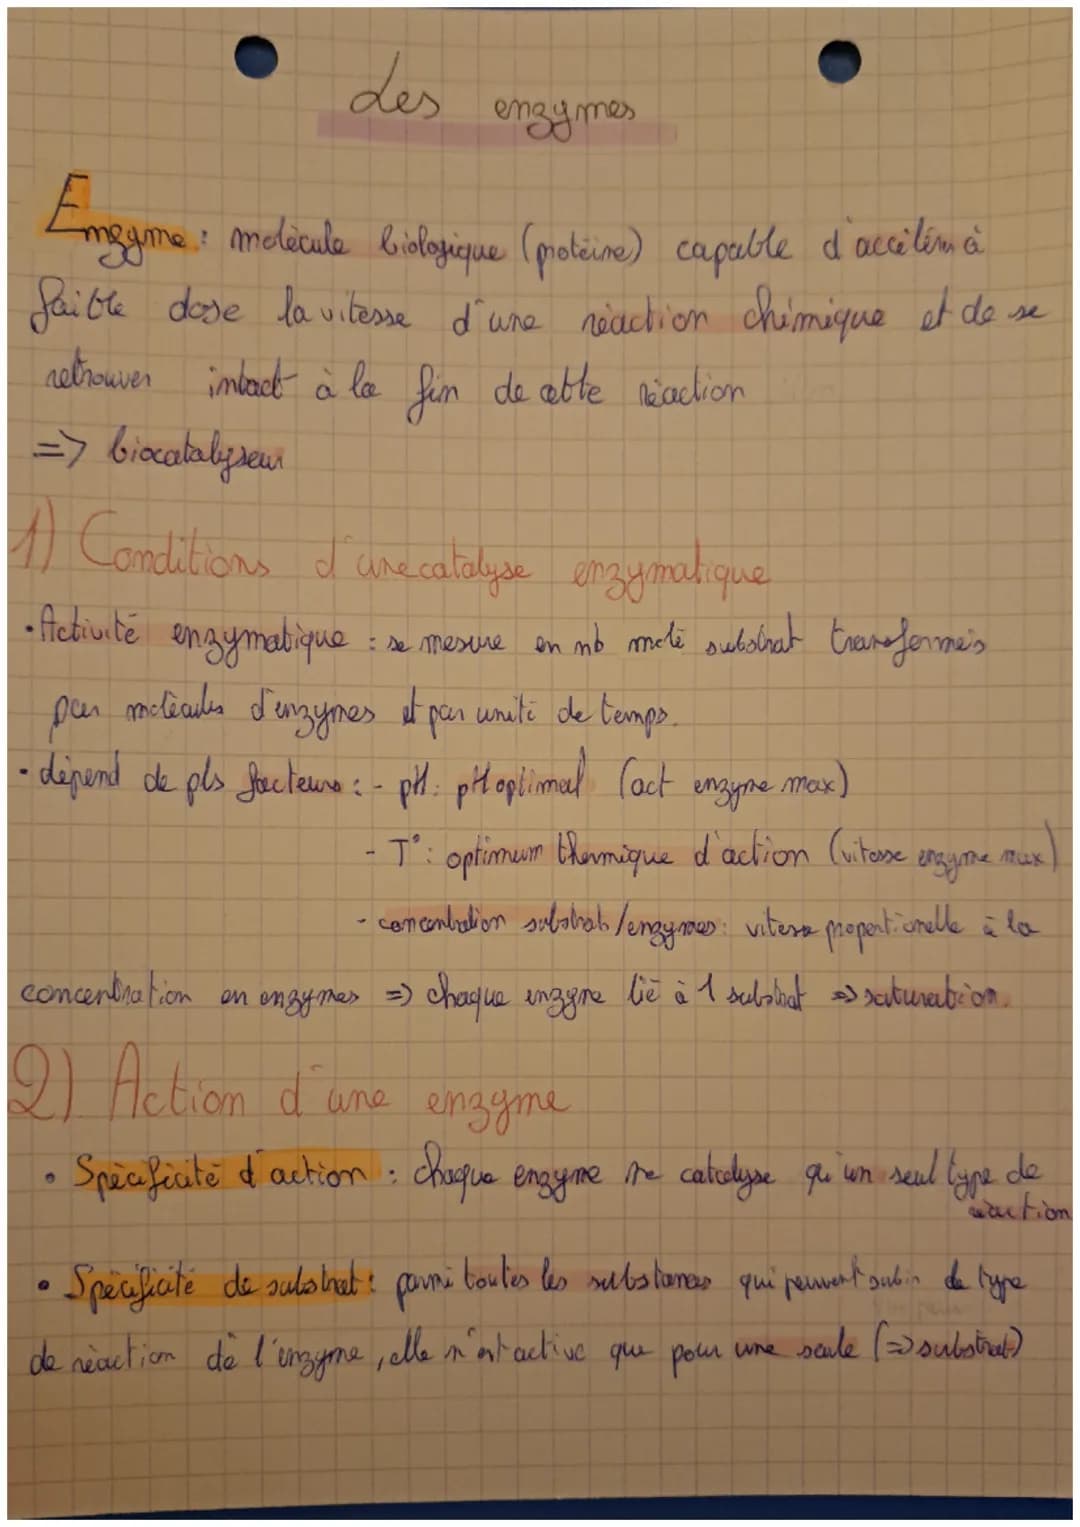 Les enzymes
Enzyme : molécule biologique (protéine) capable d'accélérer à
faible dose la vitesse d'une réaction chimique et de se
retrouver intact à la fin de cette réaction
=> biocatalyseur
1) Conditions d'une catalyse enzymatique
• Activité enzymatique : se mesure en nb molé substrat transformés
par molécules d'enzymes et par unité de temps.
• dépend de pls facteurs : - pH : pH optimal (act enzyme max)
- T° : optimum thermique d'action (vitesse enzyme max)
- concentration substrat/enzymes : vitesse proportionelle à la
concentration en enzymes => chaque enzyme lié à 1 substrat => saturation.
2) Action d'une enzyme
• Spécificité d'action : chaque enzyme ne catalyse qu'un seul type de
réaction
• Spécificité de substrat : parmi toutes les substances qui peuvent subir le type
de réaction de l'enzyme, elle n'est active que pour une seule (=> substrat)